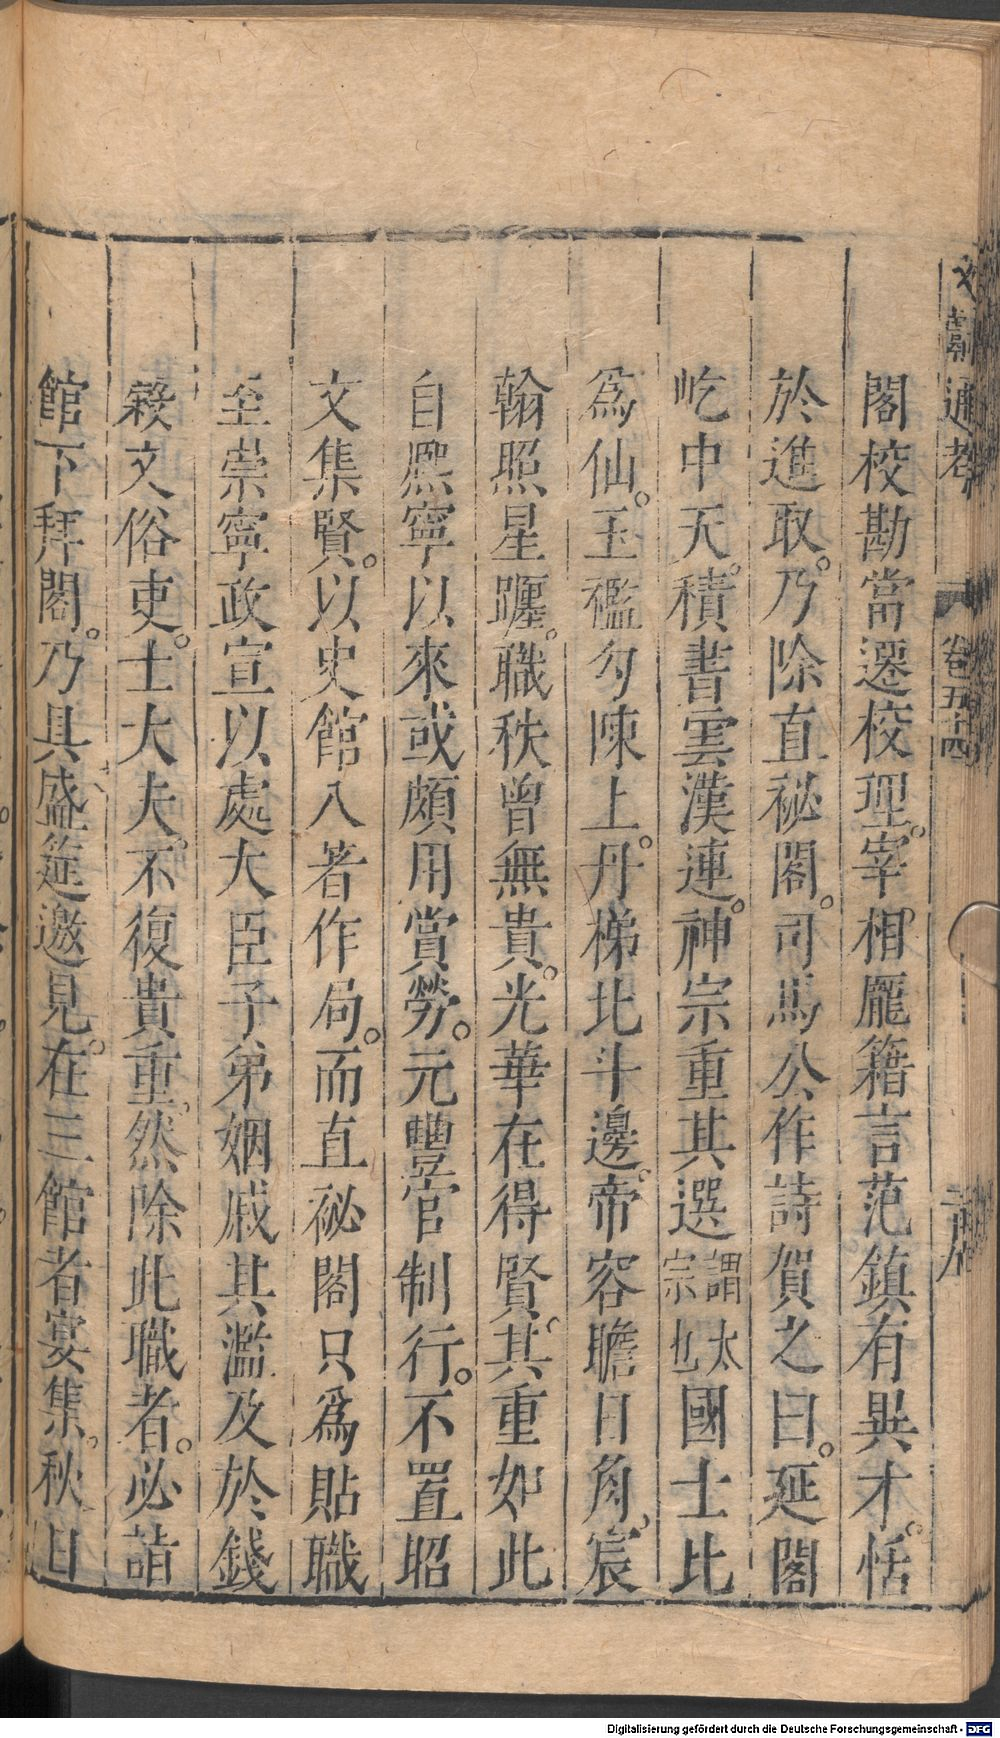 文獻通考 卷五十四
閣校勘當遷校理。宰相龎籍言范鎮有異才。恬
於進取。乃除直祕閣。司馬公作詩賀之曰。延閣
屹中天。積書雲漢連。神宗重其選謂太宗也國士比
為仙。玉檻勾陳上。丹梯北斗邊。帝容瞻日角。宸
翰照星躔。職秩曾無貴。光華在得賢。其重如此
自熈寧以來或頗用賞勞。元豐官制行。不置昭
文集賢。以史館入著作局。而直祕閣只為貼職
至崇寧政宣以處大臣子弟姻戚其濫及於錢
穀文俗吏。士大夫。不復貴重。然除此職者。必詣
館下拜閣。乃具盛筵邀見。在三館者宴集。秋日
Digitalisierung gefördert durch die Deutsche Forschungsgemeinschaft - DFG